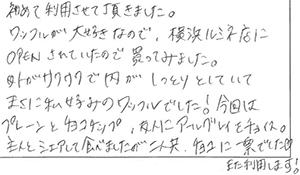 初めて利用させて頂きました。
ワッフルが大好きなので、横浜ルミネ店に
OPENされていたので買ってみました。
外がサクサクで内がしっとりとしていて
まさに私好みのワッフルでした！今回は
プレーンとチョコチップ、友人にアールグレイをチョイス。
主人とシェアして食べましたが二人共、チョコに一票でした♡
また利用します！